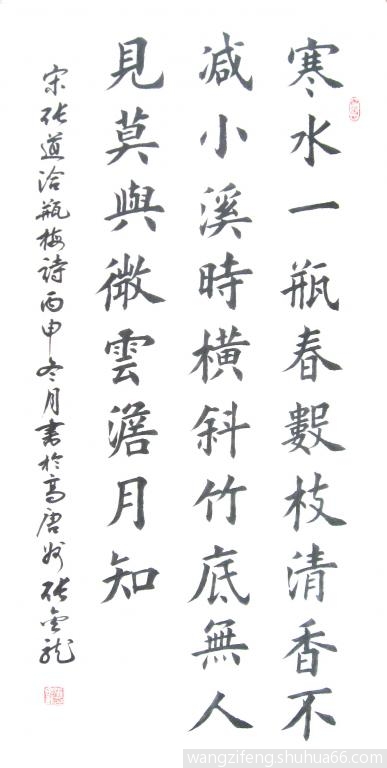 寒水一瓶春數枝清香不
減小溪時橫斜竹底無人
見莫與微雲澹月知
宋張道洽瓶梅詩丙申冬月書於高唐州張金龍
wangzifeng.shuhua66.com